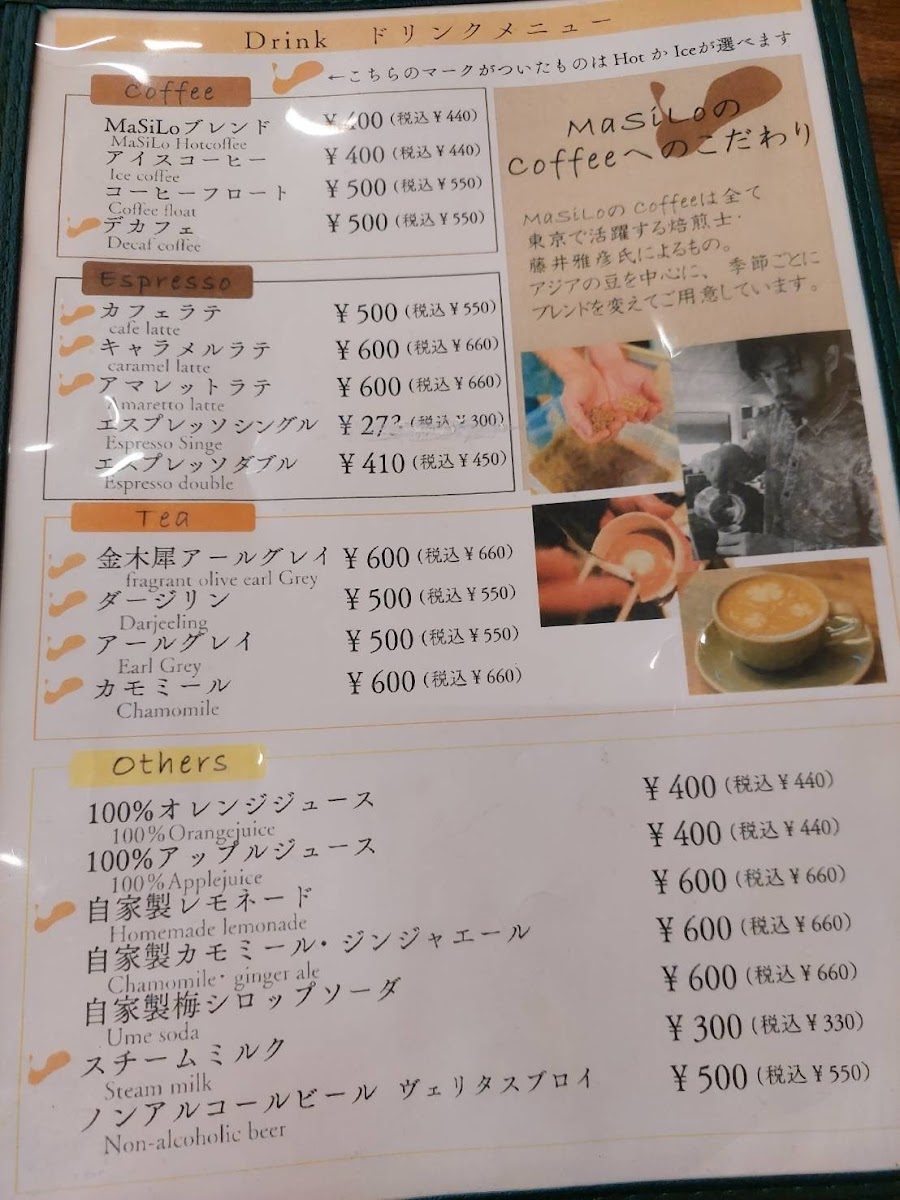 Drink ドリンクメニュー
←こちらのマークがついたものは Hot か Iceが選べます
Coffee
MaSiLoブレンド ¥400 (税込¥440)
MaSiLo Hotcoffee
アイスコーヒー ¥400 (税込¥440)
Ice coffee
コーヒーフロート ¥500 (税込¥550)
Coffee float
デカフェ ¥500 (税込¥550)
Decaf coffee
Espresso
カフェラテ ¥500 (税込¥550)
cafe latte
キャラメルラテ ¥600 (税込¥660)
caramel latte
アマレットラテ ¥600 (税込¥660)
Amaretto latte
エスプレッソシングル ¥273 (税込¥300)
Espresso Singe
エスプレッソダブル ¥410 (税込¥450)
Espresso double
Tea
金木犀アールグレイ ¥600 (税込¥660)
fragrant olive earl Grey
ダージリン ¥500 (税込¥550)
Darjeeling
アールグレイ ¥500 (税込¥550)
Earl Grey
カモミール ¥600 (税込¥660)
Chamomile
MaSiLoの
Coffeeへのこだわり
MaSiLoの Coffeeは全て
東京で活躍する焙煎士・
藤井雅彦氏によるもの。
アジアの豆を中心に、季節ごとに
ブレンドを変えてご用意しています。
Others
100%オレンジジュース ¥400 (税込¥440)
100%Orangejuice
100%アップルジュース ¥400 (税込¥440)
100%Applejuice
自家製レモネード ¥600 (税込¥660)
Homemade lemonade
自家製カモミール・ジンジャエール ¥600 (税込¥660)
Chamomile・ginger ale
自家製梅シロップソーダ ¥600 (税込¥660)
Ume soda
スチームミルク ¥300 (税込¥330)
Steam milk
ノンアルコールビール ヴェリタスブロイ ¥500 (税込¥550)
Non-alcoholic beer